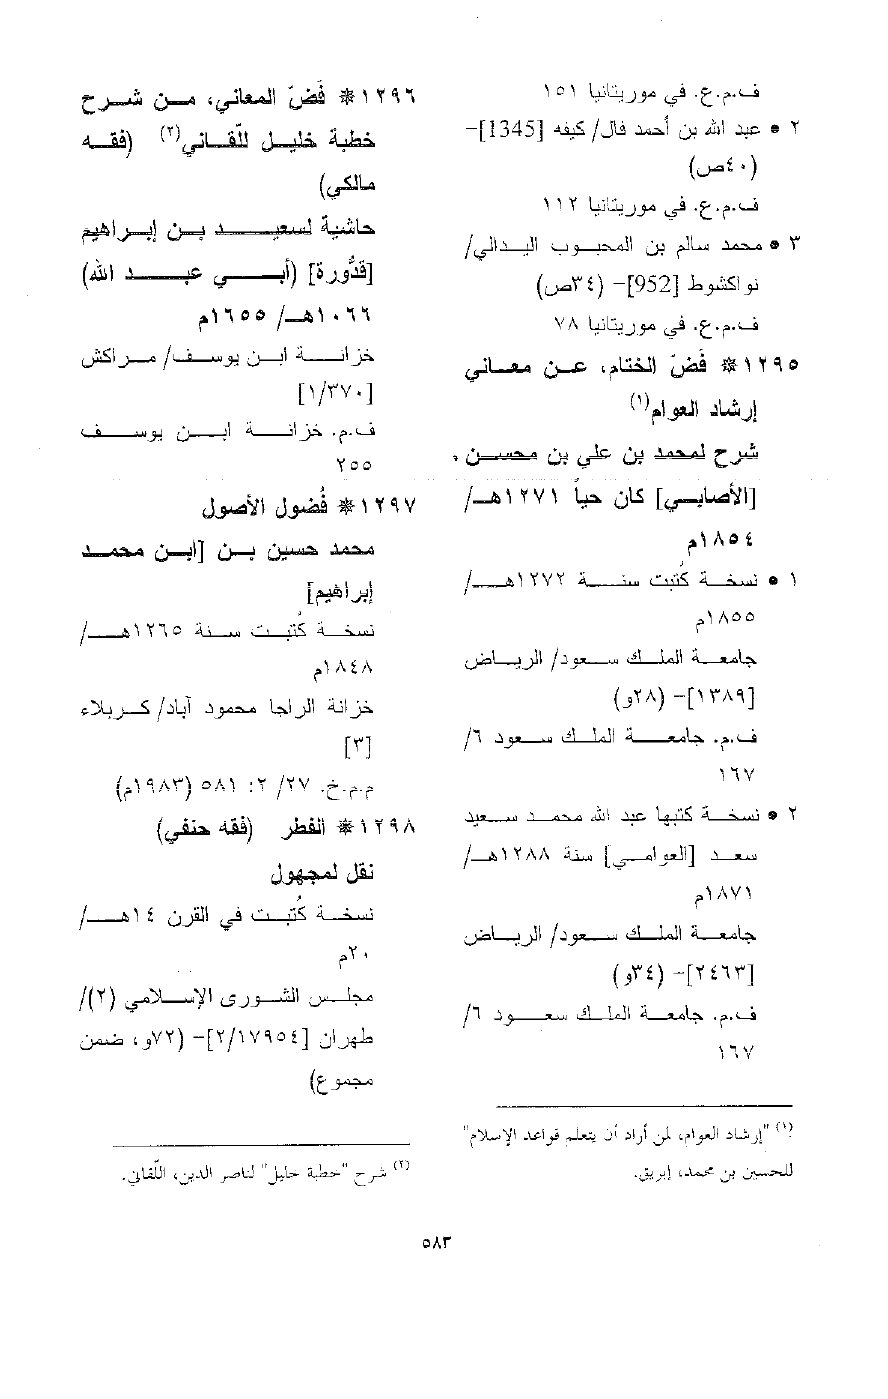 ف.م.ع. في موريتانيا ١٥١
٢ • عبد الله بن أحمد فال/ كيفه [1345]-
(٤٠ص)
ف.م.ع. في موريتانيا ١١٢
٣ • محمد سالم بن المحبوب اليدالي/
نواكشوط [952]- (٣٤ص)
ف.م.ع. في موريتانيا ٧٨
١٢٩٥ * فَضّ الختام، عن معاني
إرشاد العوام(١)
شرح لمحمد بن علي بن محسن
[الأصابي] كان حياً ١٢٧١هـ/
١٨٥٤م
١ • نسخة كُتبت سنة ١٢٧٢هـ/
١٨٥٥م
جامعة الملك سعود/ الرياض
[١٣٨٩]- (٢٨و)
ف.م. جامعة الملك سعود ٦/
١٦٧
٢ • نسخة كتبها عبد الله محمد سعيد
سعد [العوامي] سنة ١٢٨٨هـ/
١٨٧١م
جامعة الملك سعود/ الرياض
[٢٤٦٣]- (٣٤و)
ف.م. جامعة الملك سعود ٦/
١٦٧
(١) "إرشاد العوام، لمن أراد أن يتعلم قواعد الإسلام"
للحسين بن محمد، إبريق.
١٢٩٦ * فَضّ المعاني، من شرح
خطبة خليل للّقاني(٢) (فقه
مالكي)
حاشية لسعيد بن إبراهيم
[قدُّورة] (أبي عبد الله)
١٠٦٦هـ/ ١٦٥٥م
خزانة ابن يوسف/ مراكش
[١/٣٧٠]
ف.م. خزانة ابن يوسف
٢٥٥
١٢٩٧ * فُضول الأصول
محمد حسين بن [ابن محمد
إبراهيم]
نسخة كُتبت سنة ١٢٦٥هـ/
١٨٤٨م
خزانة الراجا محمود آباد/ كربلاء
[٣]
م.م.خ. ٢٧/ ٢: ٥٨١ (١٩٨٣م)
١٢٩٨ * الفطر (فقه حنفي)
نقل لمجهول
نسخة كُتبت في القرن ١٤هـ/
٢٠م
مجلس الشورى الإسلامي (٢)/
طهران [٢/١٧٩٥٤]- (٧٢و، ضمن
مجموع)
(٢) شرح "خطبة خليل" لناصر الدين، اللّقاني.
٥٨٣